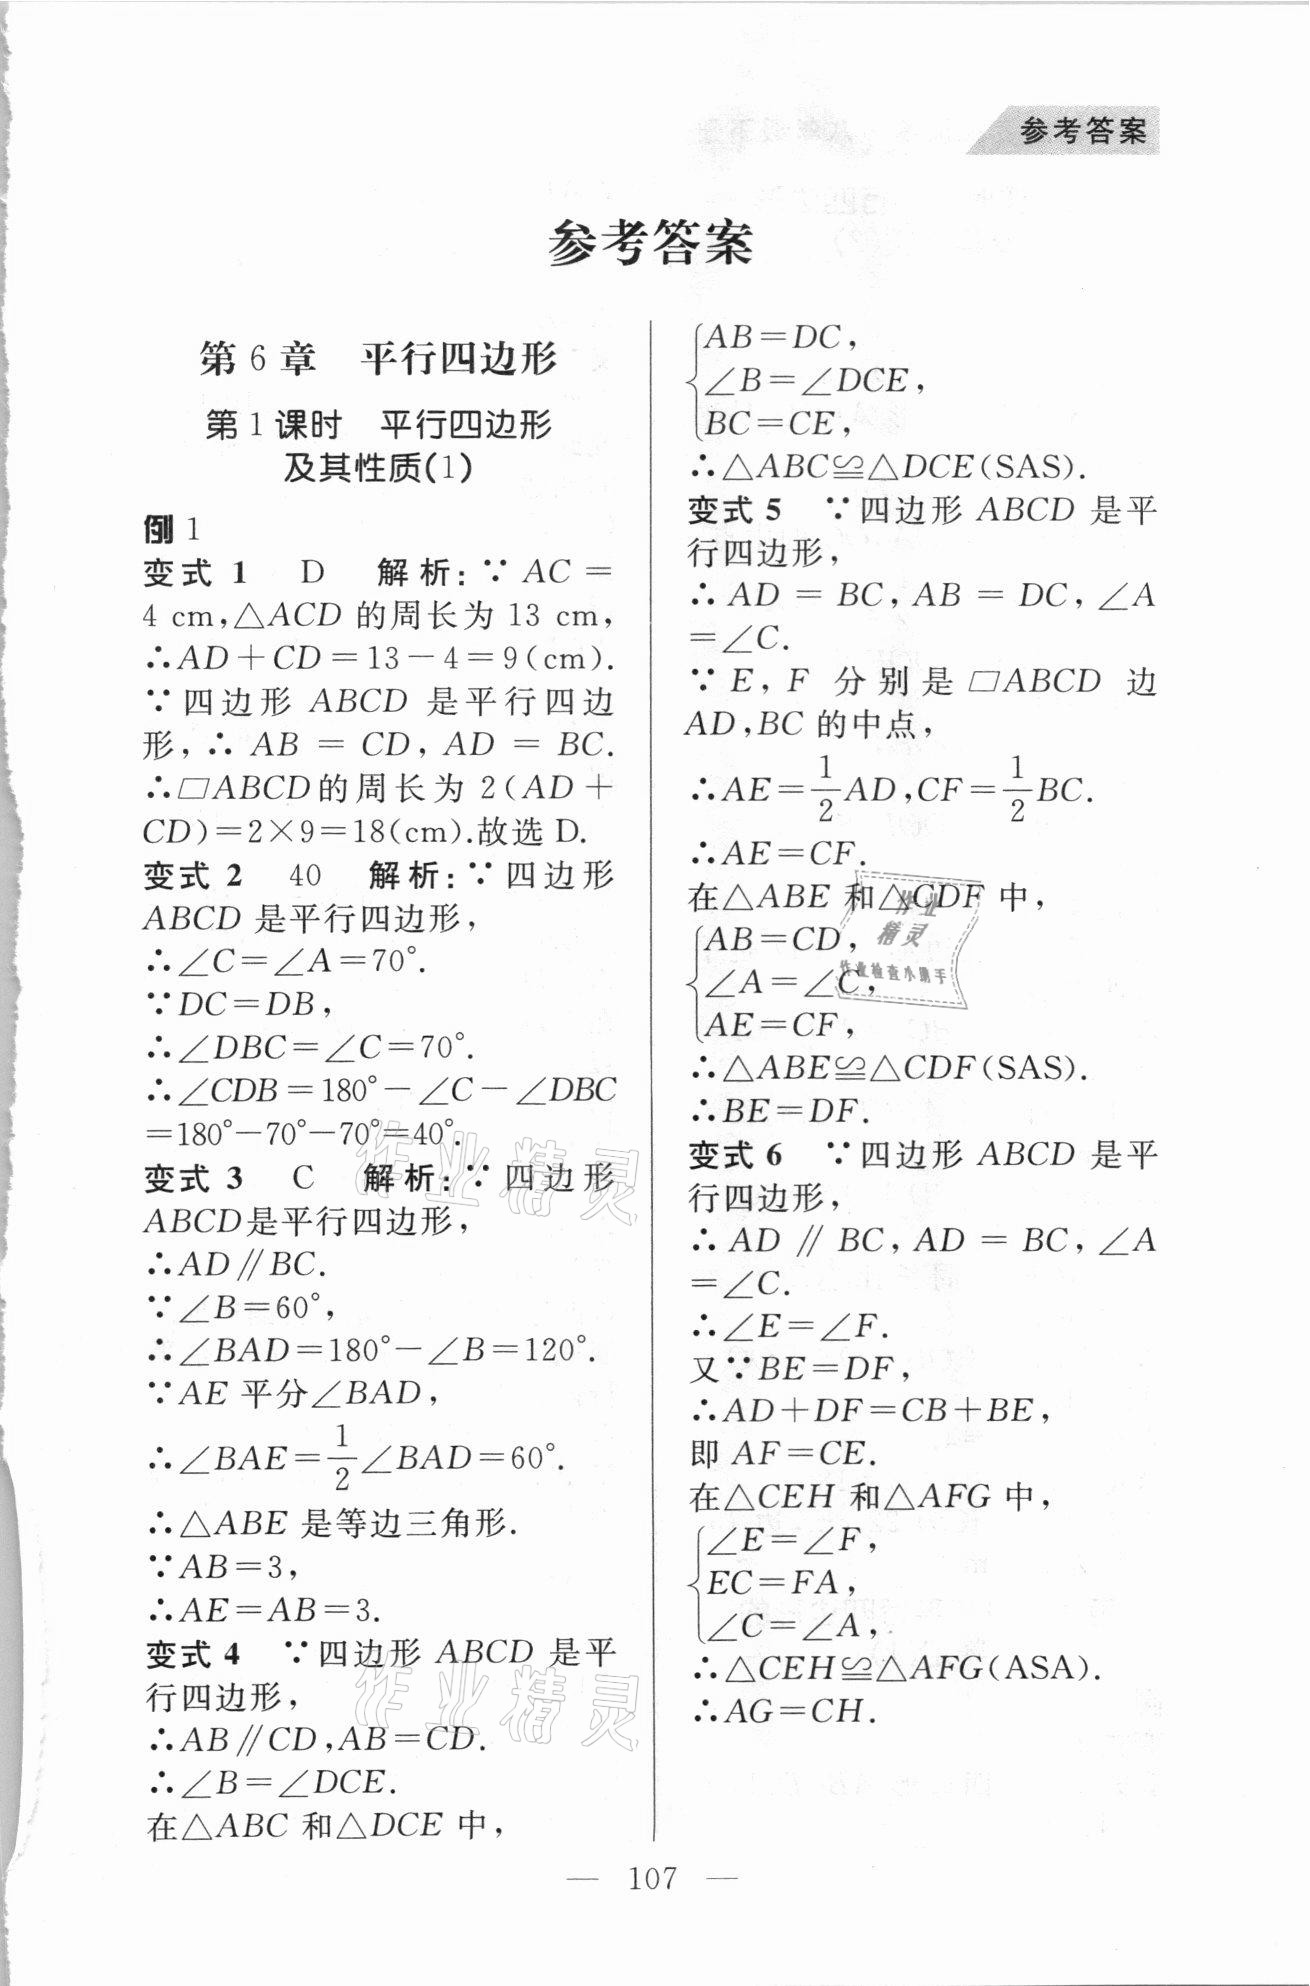 参考答案
参考答案
第6章 平行四边形
第1课时 平行四边形
及其性质(1)
例1
变式1 D 解析:∵AC=
4 cm,△ACD的周长为13 cm,
∴AD+CD=13-4=9(cm).
∵四边形ABCD是平行四边
形,∴AB=CD,AD=BC.
∴▱ABCD的周长为2(AD+
CD)=2×9=18(cm).故选D.
变式2 40 解析:∵四边形
ABCD是平行四边形,
∴∠C=∠A=70°.
∵DC=DB,
∴∠DBC=∠C=70°.
∴∠CDB=180°-∠C-∠DBC
=180°-70°-70°=40°.
变式3 C 解析:∵四边形
ABCD是平行四边形,
∴AD∥BC.
∵∠B=60°,
∴∠BAD=180°-∠B=120°.
∵AE平分∠BAD,
∴∠BAE=1/2∠BAD=60°.
∴△ABE是等边三角形.
∵AB=3,
∴AE=AB=3.
变式4 ∵四边形ABCD是平
行四边形,
∴AB∥CD,AB=CD.
∴∠B=∠DCE.
在△ABC和△DCE中,
AB=DC,
∠B=∠DCE,
BC=CE,
∴△ABC≌△DCE(SAS).
变式5 ∵四边形ABCD是平
行四边形,
∴AD=BC,AB=DC,∠A
=∠C.
∵E,F分别是▱ABCD边
AD,BC的中点,
∴AE=1/2AD,CF=1/2BC.
∴AE=CF.
在△ABE和△CDF中,
AB=CD,
∠A=∠C,
AE=CF,
∴△ABE≌△CDF(SAS).
∴BE=DF.
变式6 ∵四边形ABCD是平
行四边形,
∴AD∥BC,AD=BC,∠A
=∠C.
∴∠E=∠F.
又∵BE=DF,
∴AD+DF=CB+BE,
即AF=CE.
在△CEH和△AFG中,
∠E=∠F,
EC=FA,
∠C=∠A,
∴△CEH≌△AFG(ASA).
∴AG=CH.
— 107 —
作业
精灵
作业检查小助手
作业精灵
作业精灵